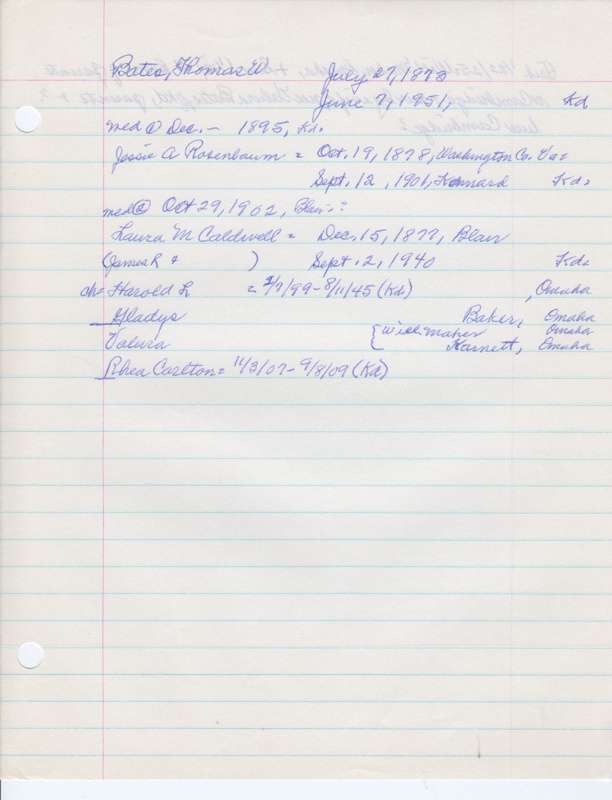 Bates, Thomas W. July 27, 1873
June 7, 1951, Kd
med ① Dec. – 1895, Kd.
Jessie A Rosenbaum = Oct. 19, 1878, Washington Co.
Sept. 12, 1901, Kennard Kd.
med ② Oct 29, 1902, Blair?
Laura M Caldwell = Dec. 15, 1877, Blair
(James R + ) Sept. 2, 1940 Kd.
ch- Harold L = 2/7/99 – 8/11/45 (Kd) , Omaha
Gladys Baker, Omaha
Velura { Omaha
Karnett, Omaha
Rhea Carlton = 11/3/07 – 9/8/09 (Kd)